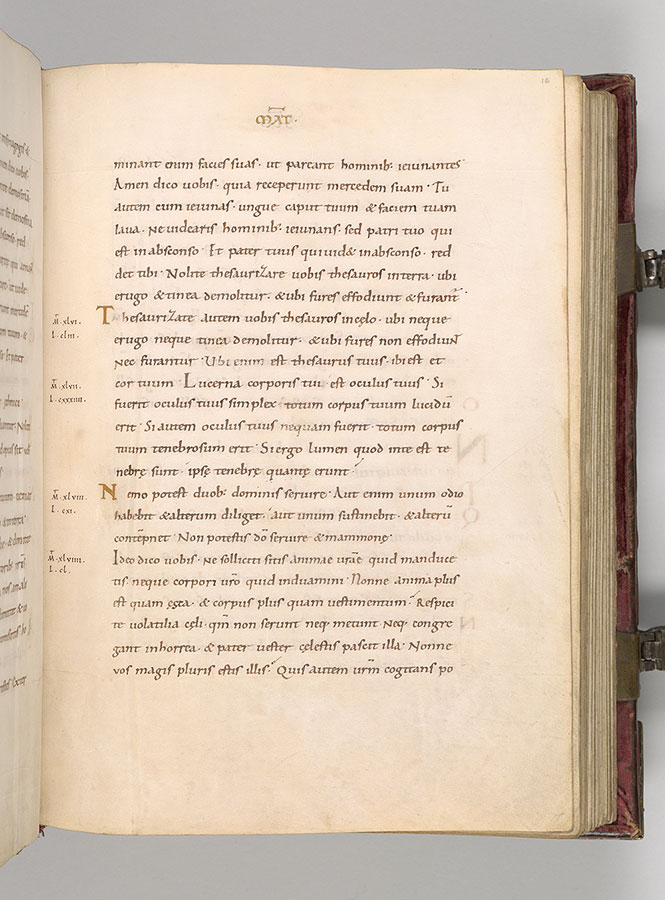 16
MAT·
minant enim facies suas· ut pareant hominib; ieiunantes
Amen dico uobis· quia receperunt mercedem suam· Tu
autem cum ieiunas· ungue caput tuum & faciem tuam
laua· Ne uidearis hominib; ieiunans· sed patri tuo qui
est in absconso· Et pater tuus qui uid& in absconso· red
det tibi· Nolite thesaurizare uobis thesauros in terra· ubi
erugo & tinea demolitur· & ubi fures effodiunt & furant̄·
M̄. xlvi.
L. cliii.
Thesaurizate autem uobis thesauros in cęlo· ubi neque
erugo neque tinea demolitur· & ubi fures non effodiuN
nec furantur· Ubi enim est thesaurus tuus· ibi est et
M̄. xlvii.
L. cxxxiiii.
cor tuum· Lucerna corporis tui· est oculus tuus· Si
fuerit oculus tuus simplex· totum corpus tuum lucidū
erit· Si autem oculus tuus nequam fuerit· totum corpus
tuum tenebrosum erit· Si ergo lumen quod in te est te
nebrę sunt· ipsę tenebrę quantę erunt·
M̄. xlviii.
L. cxi.
Nemo potest duob; dominis seruire· Aut enim unum odio
habebit & alterum diliget· aut unum sustinebit· & alterū
contēpnet· Non potestis dō seruire & mammonę·
M̄. xlviiii.
L. cl.
Ideo dico uobis· Ne solliciti sitis animae urāe quid manduce
tis neque corpori urō quid induamini· Nonne anima plus
est quam ęsca· & corpus plus quam uestimentum· Respici
te uolatilia cęli· qm̄ non serunt neq; metunt Neq; congre
gant in horrea· & pater uester cęlestis pascit illa· Nonne
vos magis pluris estis illis· Quis autem urm̄ cogitans po